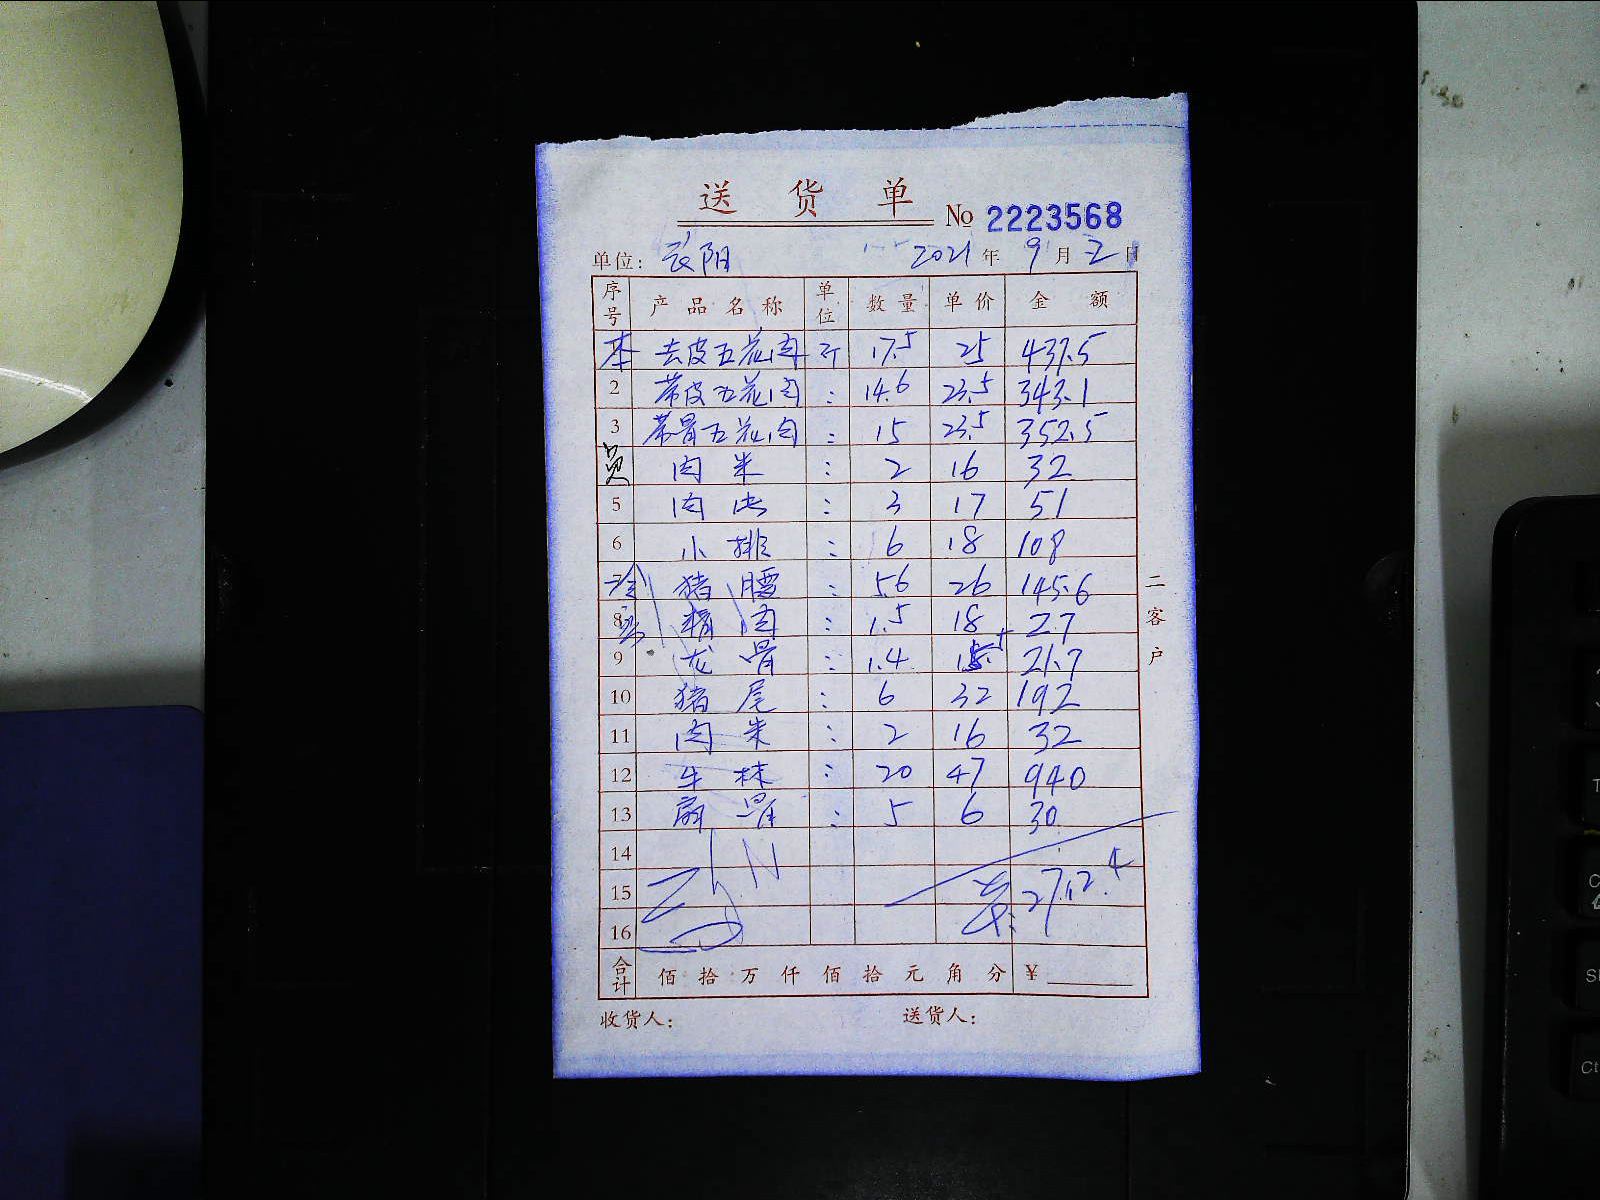 送货单 No 2223568
单位: 长阳 2021年9月2日
序号 产品名称 单位 数量 单价 金额
本 去皮五花肉 斤 17.5 25 437.5
2 带皮五花肉 : 14.6 23.5 343.1
3 带骨五花肉 : 15 23.5 352.5
员 肉米 : 2 16 32
5 肉片 : 3 17 51
6 小排 : 6 18 108
猪腰 : 5.6 26 145.6
8 精肉 : 1.5 18 27
9 龙骨 : 1.4 21.7
10 猪尾 : 6 32 192
11 肉米 : 2 16 32
12 牛林 : 20 47 940
13 扇骨 : 5 6 30
14
15 2712.4
16
合计 佰拾万仟佰拾元角分 ¥
收货人: 送货人:
二客户